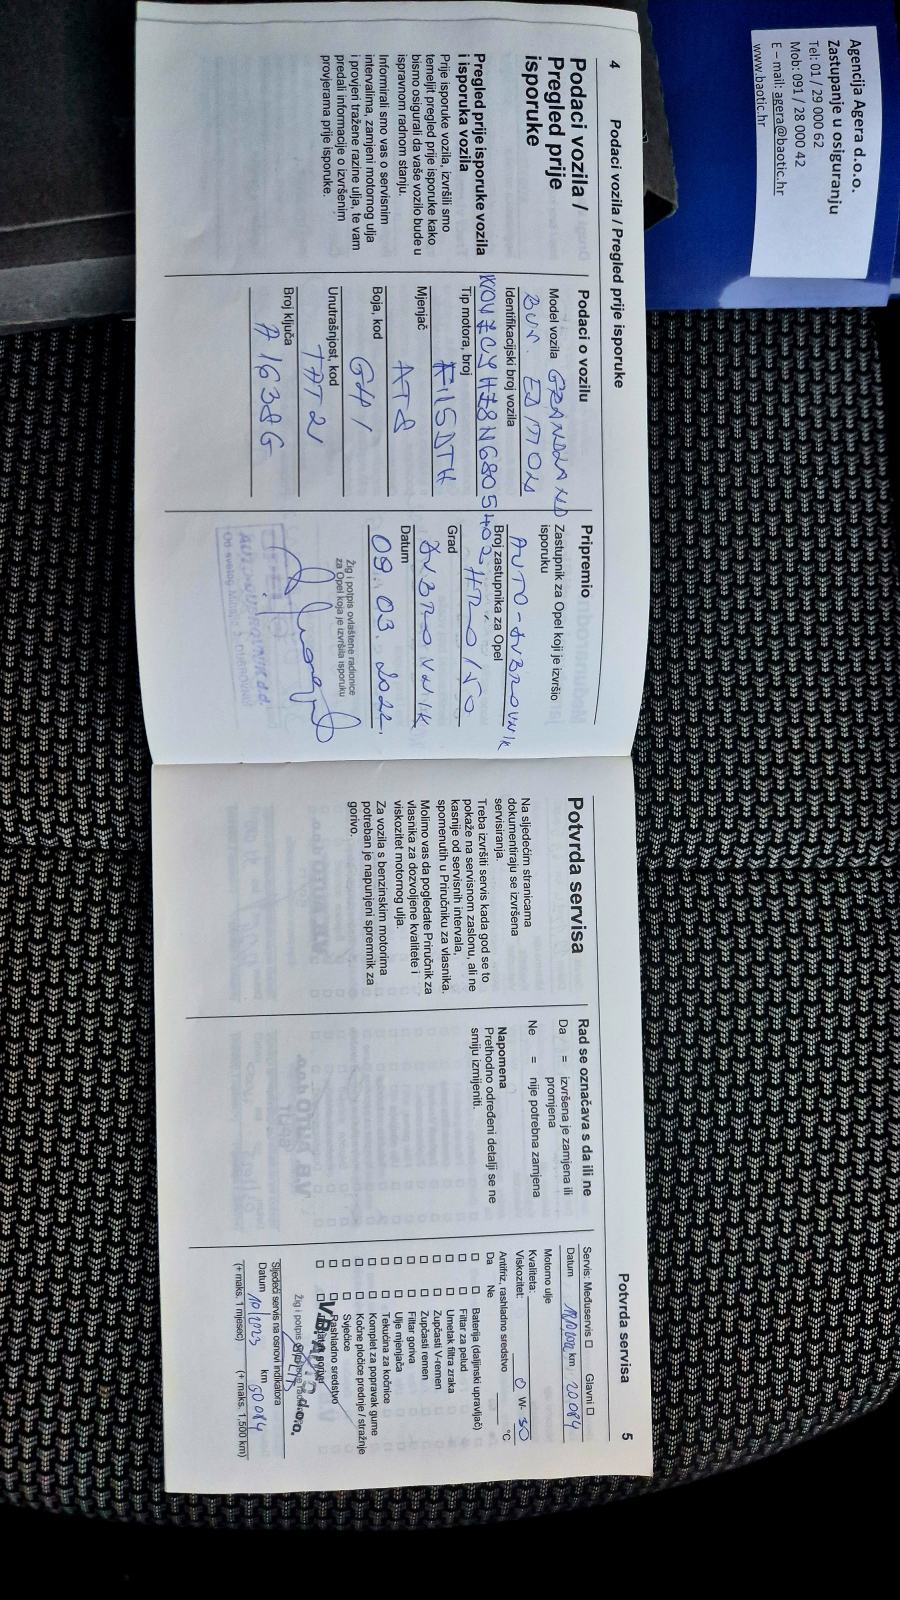 Agencija Agera d.o.o.
Zastupanje u osiguranju
Tel: 01 / 29 000 62
Mob: 091 / 28 000 42
E – mail: agera@baotic.hr
www.baotic.hr
4 Podaci vozila / Pregled prije isporuke
Podaci vozila /
Pregled prije
isporuke
Pregled prije isporuke vozila
i isporuka vozila
Prije isporuke vozila, izvršili smo
temeljit pregled prije isporuke kako
bismo osigurali da vaše vozilo bude u
ispravnom radnom stanju.
Informirali smo vas o servisnim
intervalima, zamjeni motornog ulja
i provjeri tražene razine ulja, te vam
predali informacije o izvršenim
provjerama prije isporuke.
Podaci o vozilu
Model vozila GRANDLAND
EDITION
Identifikacijski broj vozila
Tip motora, broj
F15DTH
Mjenjač
AT8
Boja, kod
G41
Unutrašnjost, kod
TAT2
Broj ključa
A1638G
Pripremio
Zastupnik za Opel koji je izvršio
isporuku
AUTO-DUBROVNIK
Broj zastupnika za Opel
Grad
DUBROVNIK
Datum
09. 03. 2022.
Žig i potpis ovlaštene radionice
za Opel koja je izvršila isporuku
Potvrda servisa 5
Potvrda servisa
Na sljedećim stranicama
dokumentiraju se izvršena
servisiranja.
Treba izvršiti servis kada god se to
pokaže na servisnom zaslonu, ali ne
kasnije od servisnih intervala,
spomenutih u Priručniku za vlasnika.
Molimo vas da pogledate Priručnik za
vlasnika za dozvoljene kvalitete i
viskozitet motornog ulja.
Za vozila s benzinskim motorima
potreban je napunjeni spremnik za
gorivo.
Rad se označava s da ili ne
Da = izvršena je zamjena ili
promjena
Ne = nije potrebna zamjena
Napomena
Prethodno određeni detalji se ne
smiju izmijeniti.
Servis: Međuservis Glavni
Datum km 20084
Motorno ulje
Kvaliteta:
Viskozitet: 0 W- 30
Antifriz, rashladno sredstvo °C
Da Ne
Baterija (daljinski upravljač)
Filtar za pelud
Umetak filtra zraka
Zupčasti V-remen
Zupčasti remen
Filtar goriva
Ulje mjenjača
Tekućina za kočnice
Komplet za popravak gume
Kočne pločice prednje / stražnje
Svjećice
Rashladno sredstvo
Žig i potpis
d.o.o.
Sljedeći servis na osnovi indikatora
Datum 10/2023 km
(+ maks. 1 mjesec) (+ maks. 1,500 km)